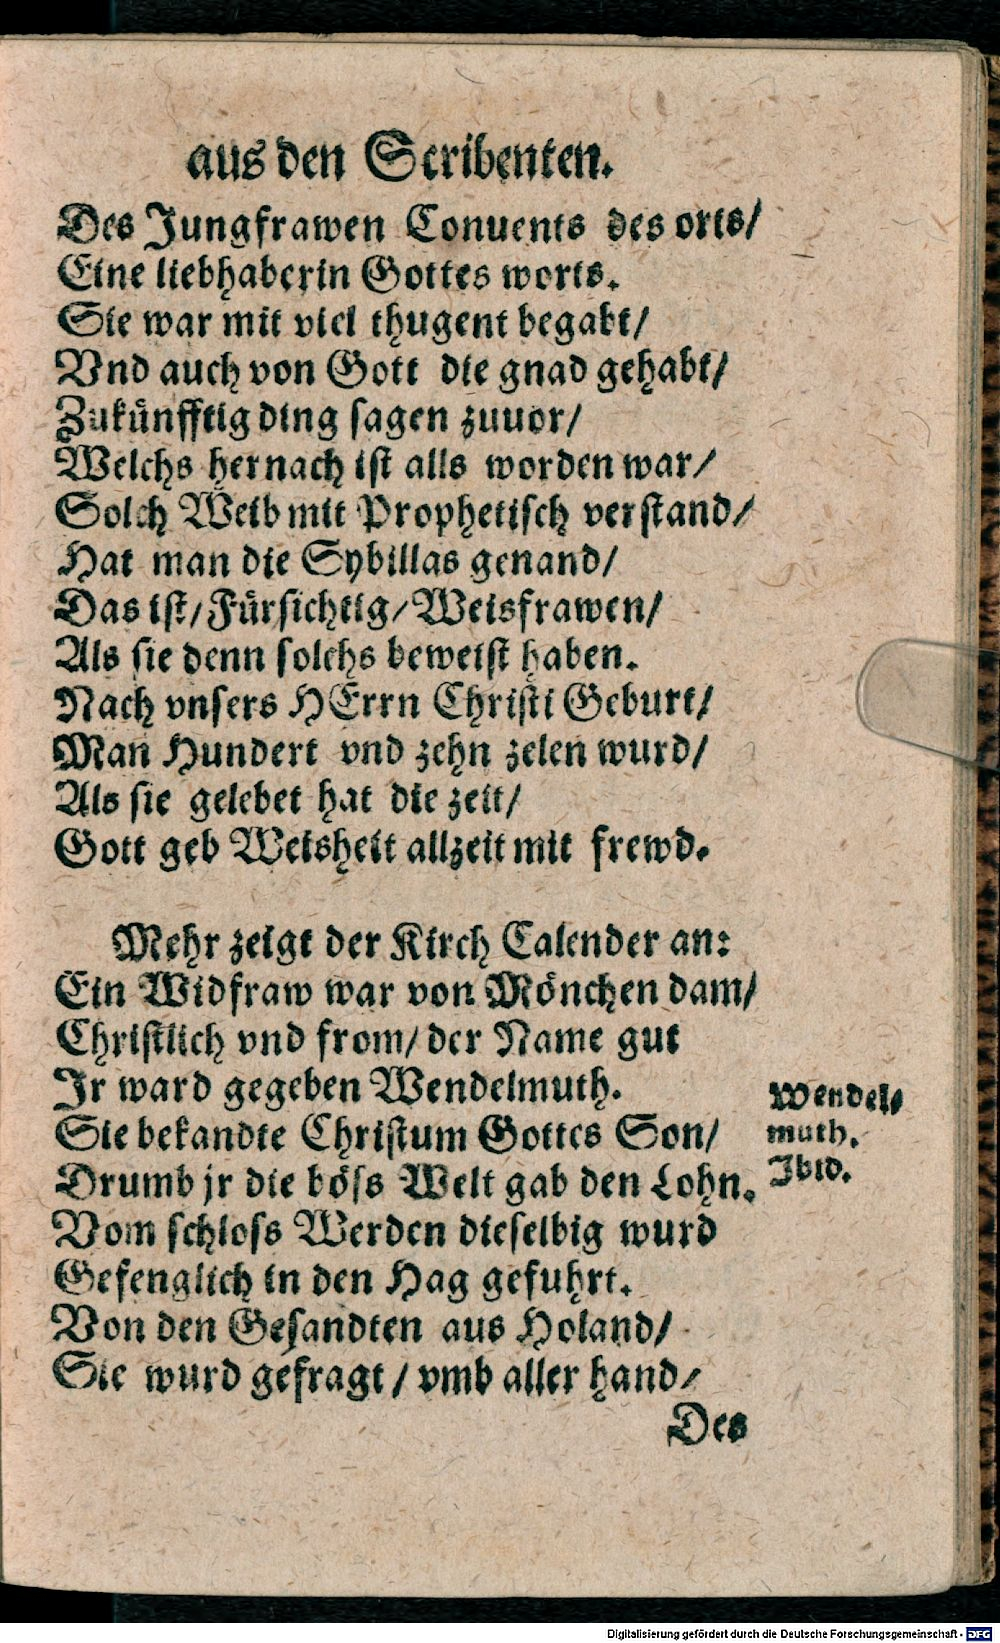 aus den Scribenten.
Des Jungfrawen Conuents des orts/
Eine liebhaberin Gottes worts.
Sie war mit viel thugent begabt/
Vnd auch von Gott die gnad gehabt/
Zukünfftig ding sagen zuuor/
Welchs hernach ist alls worden war/
Solch Weib mit Prophetisch verstand/
Hat man die Sybillas genand/
Das ist/ Fürsichtig/ Weisfrawen/
Als sie denn solchs beweist haben.
Nach vnsers HErrn Christi Geburt/
Man Hundert vnd zehn zelen wurd/
Als sie gelebet hat die zeit/
Gott geb Weisheit allzeit mit frewd.
Mehr zeigt der Kirch Calender an:
Ein Widfraw war von Mönchen dam/
Christlich vnd from/ der Name gut
Jr ward gegeben Wendelmuth.
Sie bekandte Christum Gottes Son/
Drumb jr die böss Welt gab den Lohn.
Vom schloss Werden dieselbig wurd
Gefenglich in den Hag gefuhrt.
Von den Gesandten aus Holand/
Sie wurd gefragt/ vmb aller hand/
Wendel/
muth.
Ibid.
Des
Digitalisierung gefördert durch die Deutsche Forschungsgemeinschaft - DFG